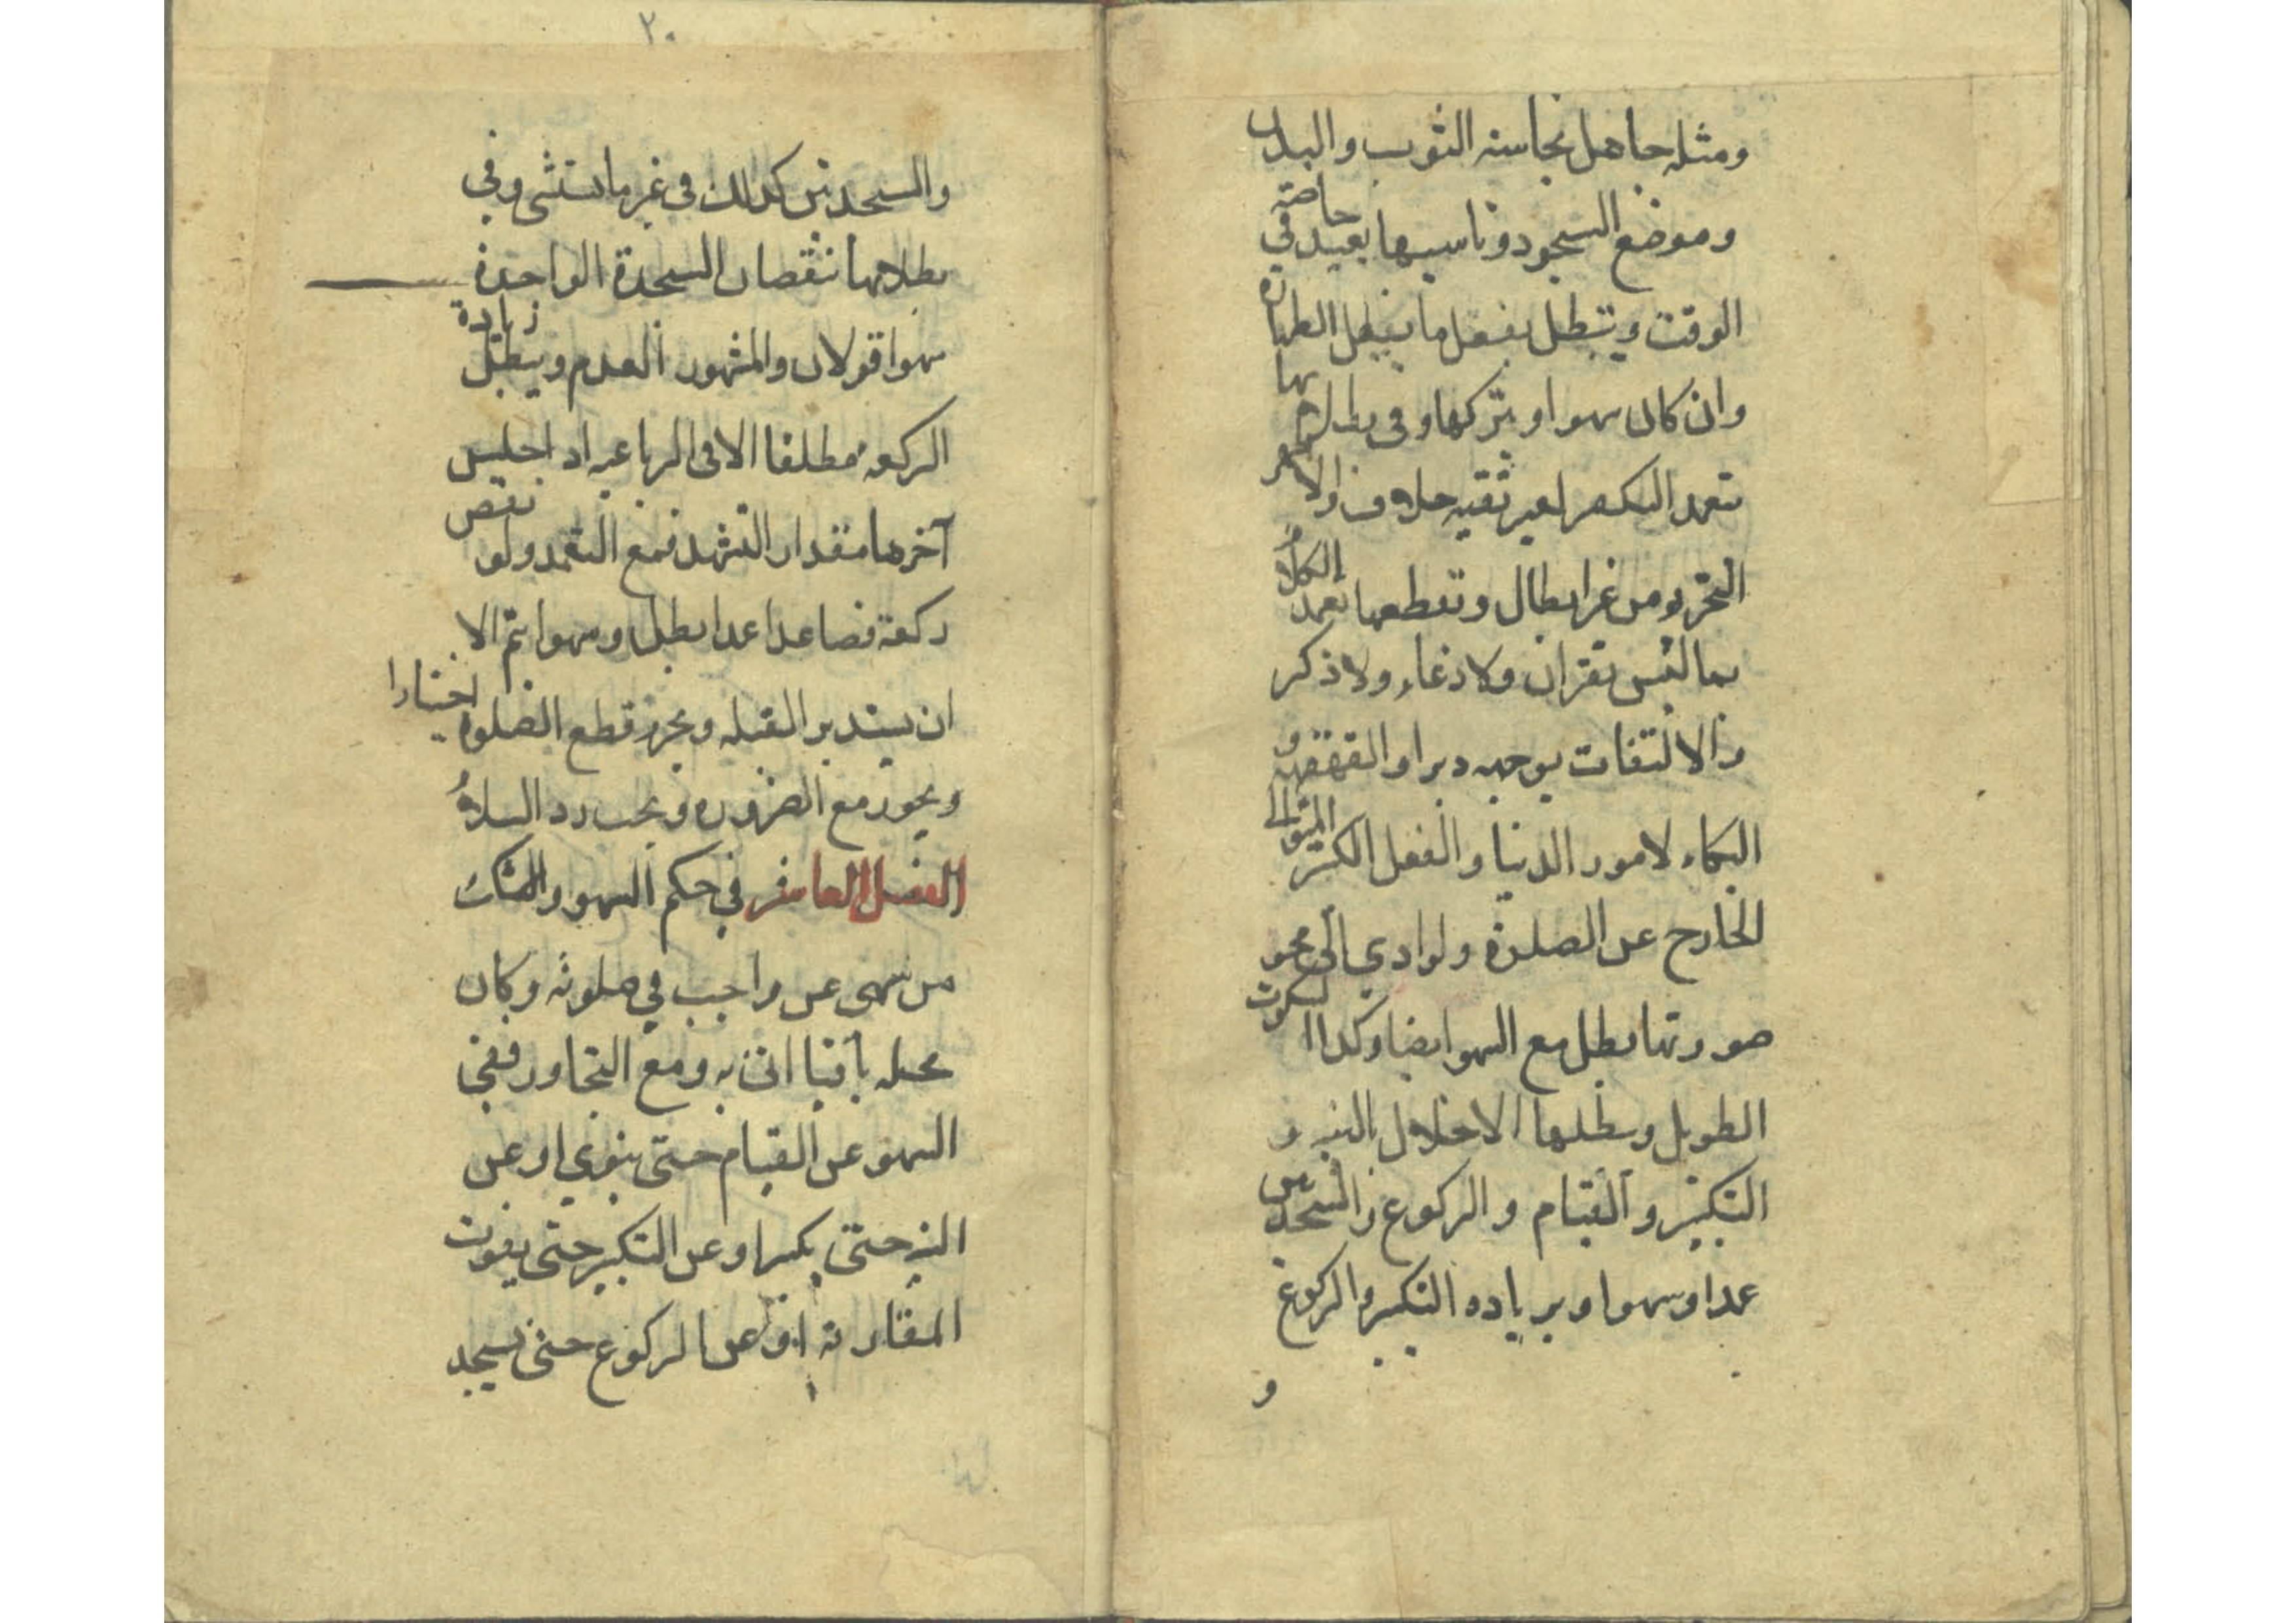 ومثله جاهل نجاسة الثوب والبدن
وموضع السجود وناسيها يعيد في خاصة
الوقت وتبطل بفعل ما يبطل الطهارة
وان كان سهوا وبتركها وفي بطلانها
بتعمد التكفير لغير تقيه خلاف والاظهر
التحريم من غير ابطال وتقطعها تعمد الكلام
بما ليس بقران ولا دعاء ولا ذكر
والالتفات بوجهه دبرا والقهقهه و
البكاء لامور الدنيا والفعل الكثير المتوالي
الخارج عن الصلوة ولو ادي الى محو
صورتها بطل مع السهو ايضا وكذا السكوت
الطويل ويبطلها الاخلال بالنيه و
التكبير و القيام و الركوع والسجدتين
عمدا وسهوا وبزياده التكبير والركوع
و
٢٠
والسجدتين كذلك في غير ما استثنى وفي
بطلانها بنقصان السجدة الواحدة
سهوا قولان والمشهور العدم ويبطل زيادة
الركعه مطلقا الا في الرباعيه اذا جلس
آخرها مقدار التشهد فمع التعمد ولو نقص
ركعة فصاعدا عمدا بطل وسهوا يتم الا
ان يستدبر القبله ويحرم قطع الصلوة اختيارا
ويجوز مع الضروره ويجب رد السلام
الفصل العاشر في حكم السهو والشك
من سهى عن واجب في صلوته وكان
محله باقيا اتى به ومع التجاوز ففي
السهو عن القيام حتى ينوي او عن
النية حتى يكبر او عن التكبير حتى يفوت
المقارنة او عن الركوع حتى يسجد